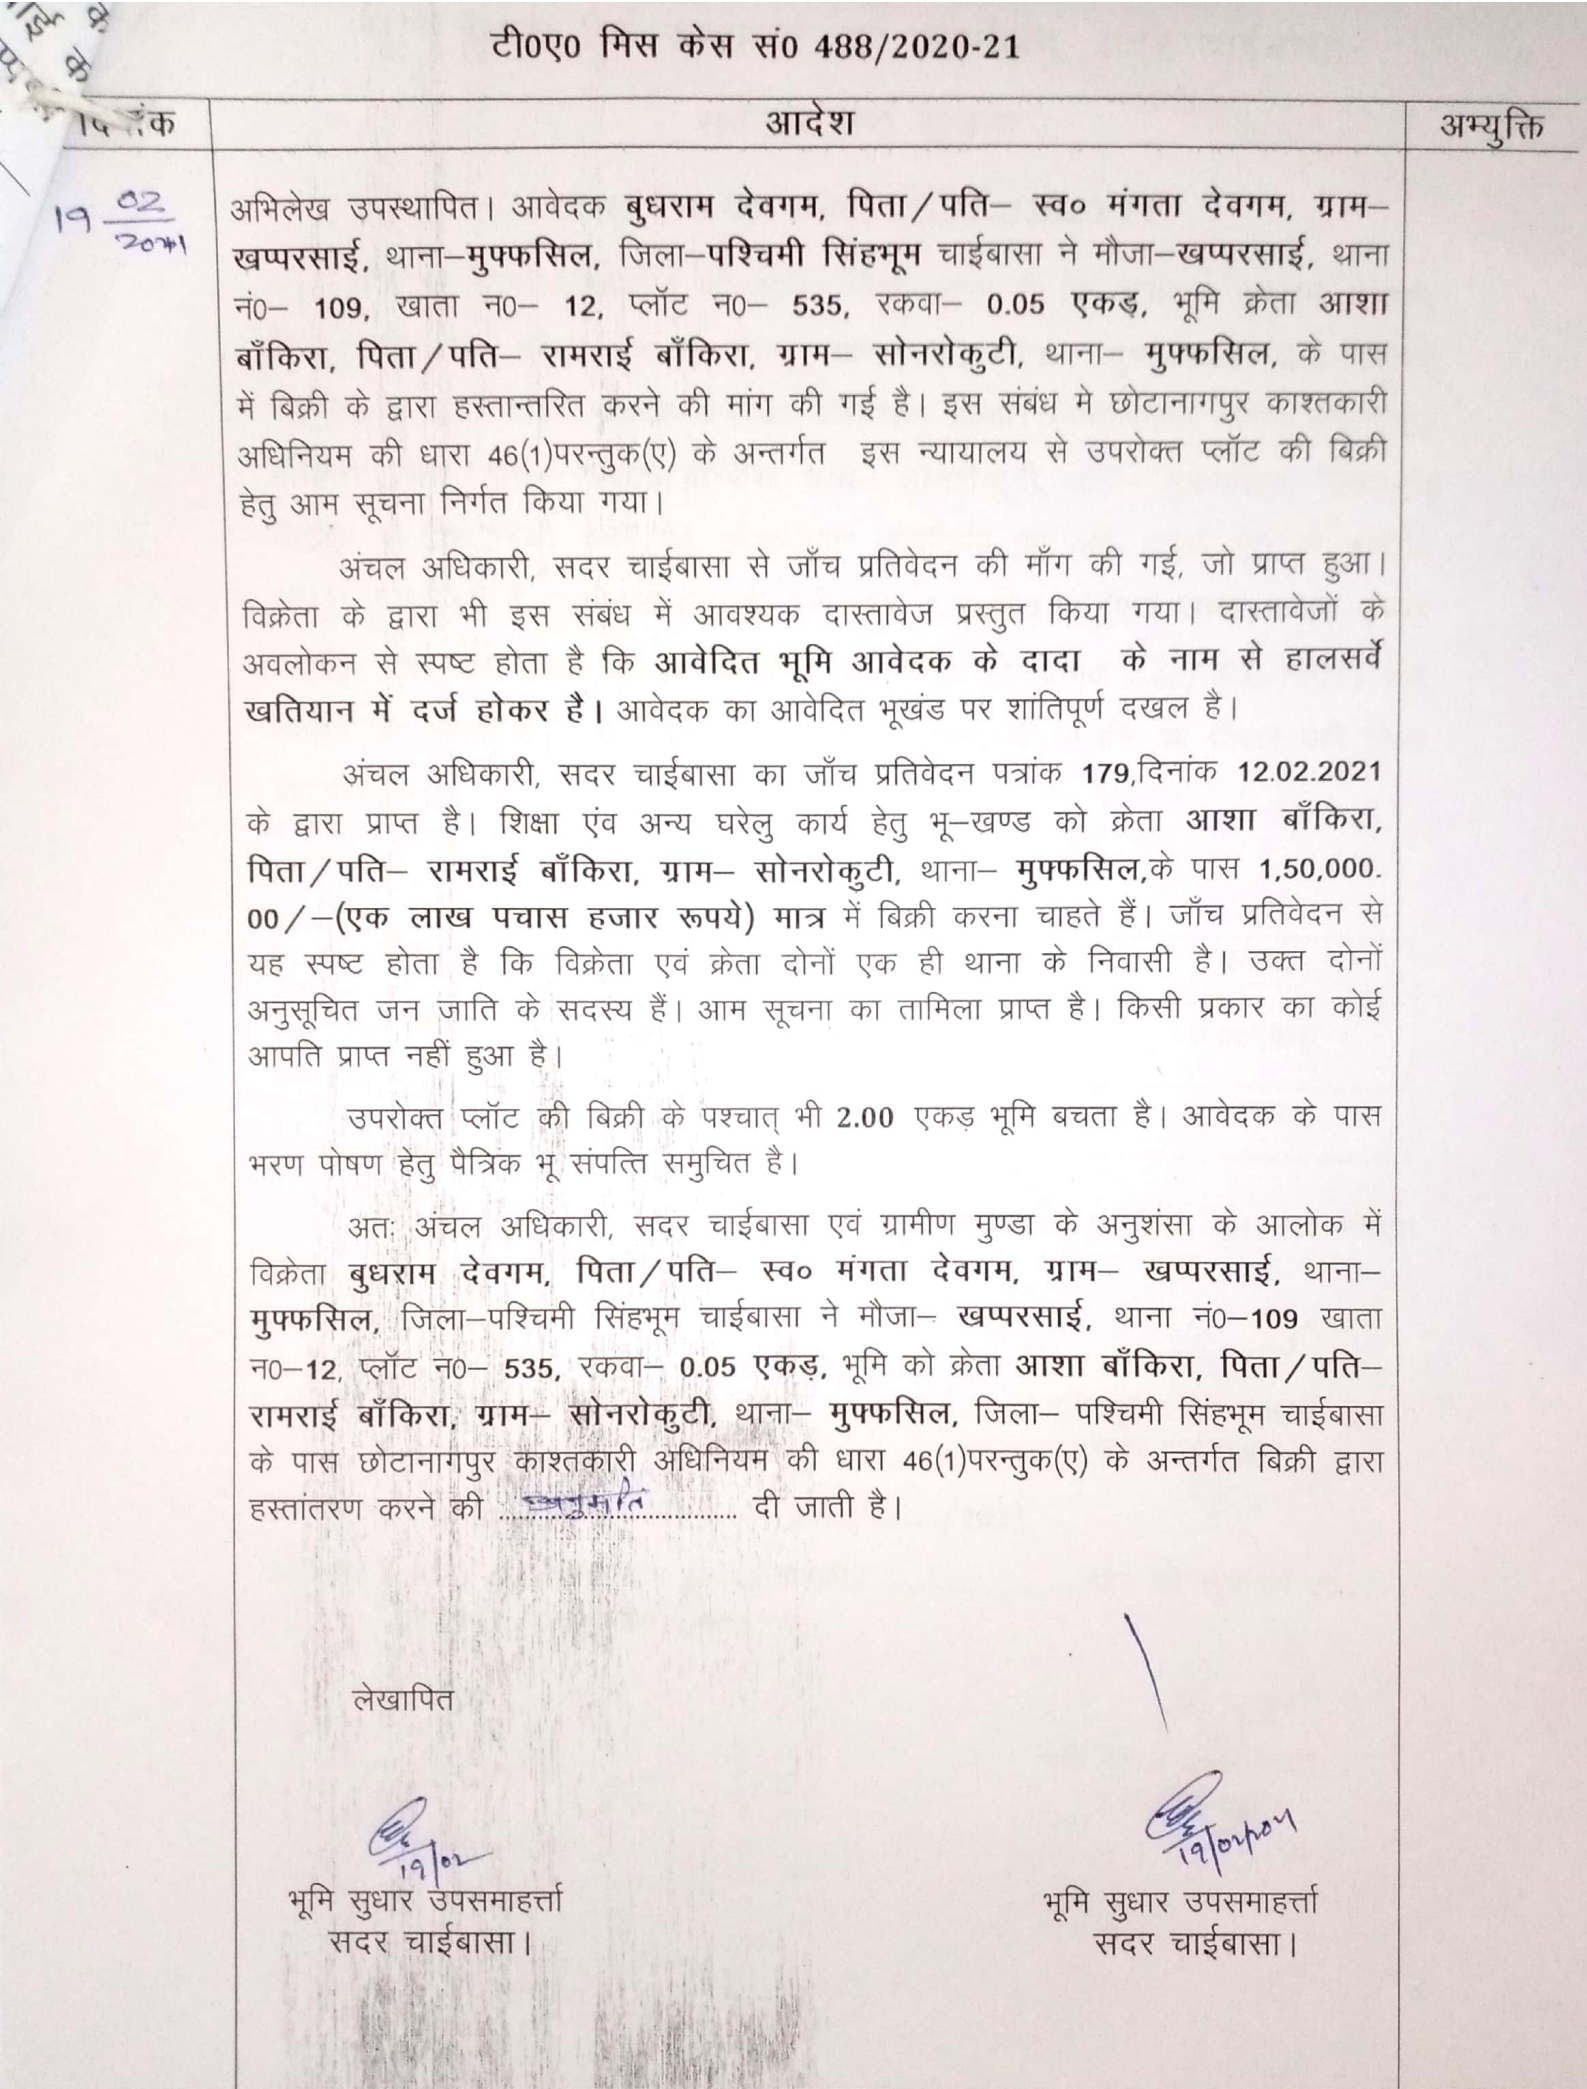 टी0ए0 मिस केस सं0 488/2020-21
दिनांक आदेश अभ्युक्ति
19 02/2021
अभिलेख उपस्थापित। आवेदक बुधराम देवगम, पिता/पति– स्व० मंगता देवगम, ग्राम–
खप्परसाई, थाना–मुफ्फसिल, जिला–पश्चिमी सिंहभूम चाईबासा ने मौजा–खप्परसाई, थाना
नं0– 109, खाता न0– 12, प्लॉट न0– 535, रकवा– 0.05 एकड़, भूमि क्रेता आशा
बाँकिरा, पिता/पति– रामराई बाँकिरा, ग्राम– सोनरोकुटी, थाना– मुफ्फसिल, के पास
में बिक्री के द्वारा हस्तान्तरित करने की मांग की गई है। इस संबंध मे छोटानागपुर काश्तकारी
अधिनियम की धारा 46(1)परन्तुक(ए) के अन्तर्गत इस न्यायालय से उपरोक्त प्लॉट की बिक्री
हेतु आम सूचना निर्गत किया गया।
अंचल अधिकारी, सदर चाईबासा से जाँच प्रतिवेदन की माँग की गई, जो प्राप्त हुआ।
विक्रेता के द्वारा भी इस संबंध में आवश्यक दास्तावेज प्रस्तुत किया गया। दास्तावेजों के
अवलोकन से स्पष्ट होता है कि आवेदित भूमि आवेदक के दादा के नाम से हालसर्वे
खतियान में दर्ज होकर है। आवेदक का आवेदित भूखंड पर शांतिपूर्ण दखल है।
अंचल अधिकारी, सदर चाईबासा का जाँच प्रतिवेदन पत्रांक 179,दिनांक 12.02.2021
के द्वारा प्राप्त है। शिक्षा एंव अन्य घरेलु कार्य हेतु भू–खण्ड को क्रेता आशा बाँकिरा,
पिता/पति– रामराई बाँकिरा, ग्राम– सोनरोकुटी, थाना– मुफ्फसिल,के पास 1,50,000.
00/–(एक लाख पचास हजार रूपये) मात्र में बिक्री करना चाहते हैं। जाँच प्रतिवेदन से
यह स्पष्ट होता है कि विक्रेता एवं क्रेता दोनों एक ही थाना के निवासी है। उक्त दोनों
अनुसूचित जन जाति के सदस्य हैं। आम सूचना का तामिला प्राप्त है। किसी प्रकार का कोई
आपति प्राप्त नहीं हुआ है।
उपरोक्त प्लॉट की बिक्री के पश्चात् भी 2.00 एकड़ भूमि बचता है। आवेदक के पास
भरण पोषण हेतु पैत्रिक भू संपत्ति समुचित है।
अतः अंचल अधिकारी, सदर चाईबासा एवं ग्रामीण मुण्डा के अनुशंसा के आलोक में
विक्रेता बुधराम देवगम, पिता/पति– स्व० मंगता देवगम, ग्राम– खप्परसाई, थाना–
मुफ्फसिल, जिला–पश्चिमी सिंहभूम चाईबासा ने मौजा– खप्परसाई, थाना नं0–109 खाता
न0–12, प्लॉट न0– 535, रकवा– 0.05 एकड़, भूमि को क्रेता आशा बाँकिरा, पिता/पति–
रामराई बाँकिरा, ग्राम– सोनरोकुटी, थाना– मुफ्फसिल, जिला– पश्चिमी सिंहभूम चाईबासा
के पास छोटानागपुर काश्तकारी अधिनियम की धारा 46(1)परन्तुक(ए) के अन्तर्गत बिक्री द्वारा
हस्तांतरण करने की ....अनुमति.... दी जाती है।
लेखापित
19/02 19/02/2021
भूमि सुधार उपसमाहर्त्ता भूमि सुधार उपसमाहर्त्ता
सदर चाईबासा। सदर चाईबासा।